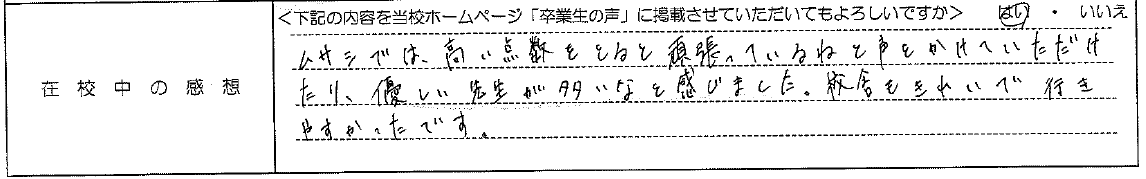 <下記の内容を当校ホームページ「卒業生の声」に掲載させていただいてもよろしいですか> はい ・ いいえ
在校中の感想
ムサシでは、高い点数をとると頑張っているねと声をかけていただけ
たり、優しい先生が多いなと感じました。校舎もきれいで行き
やすかったです。